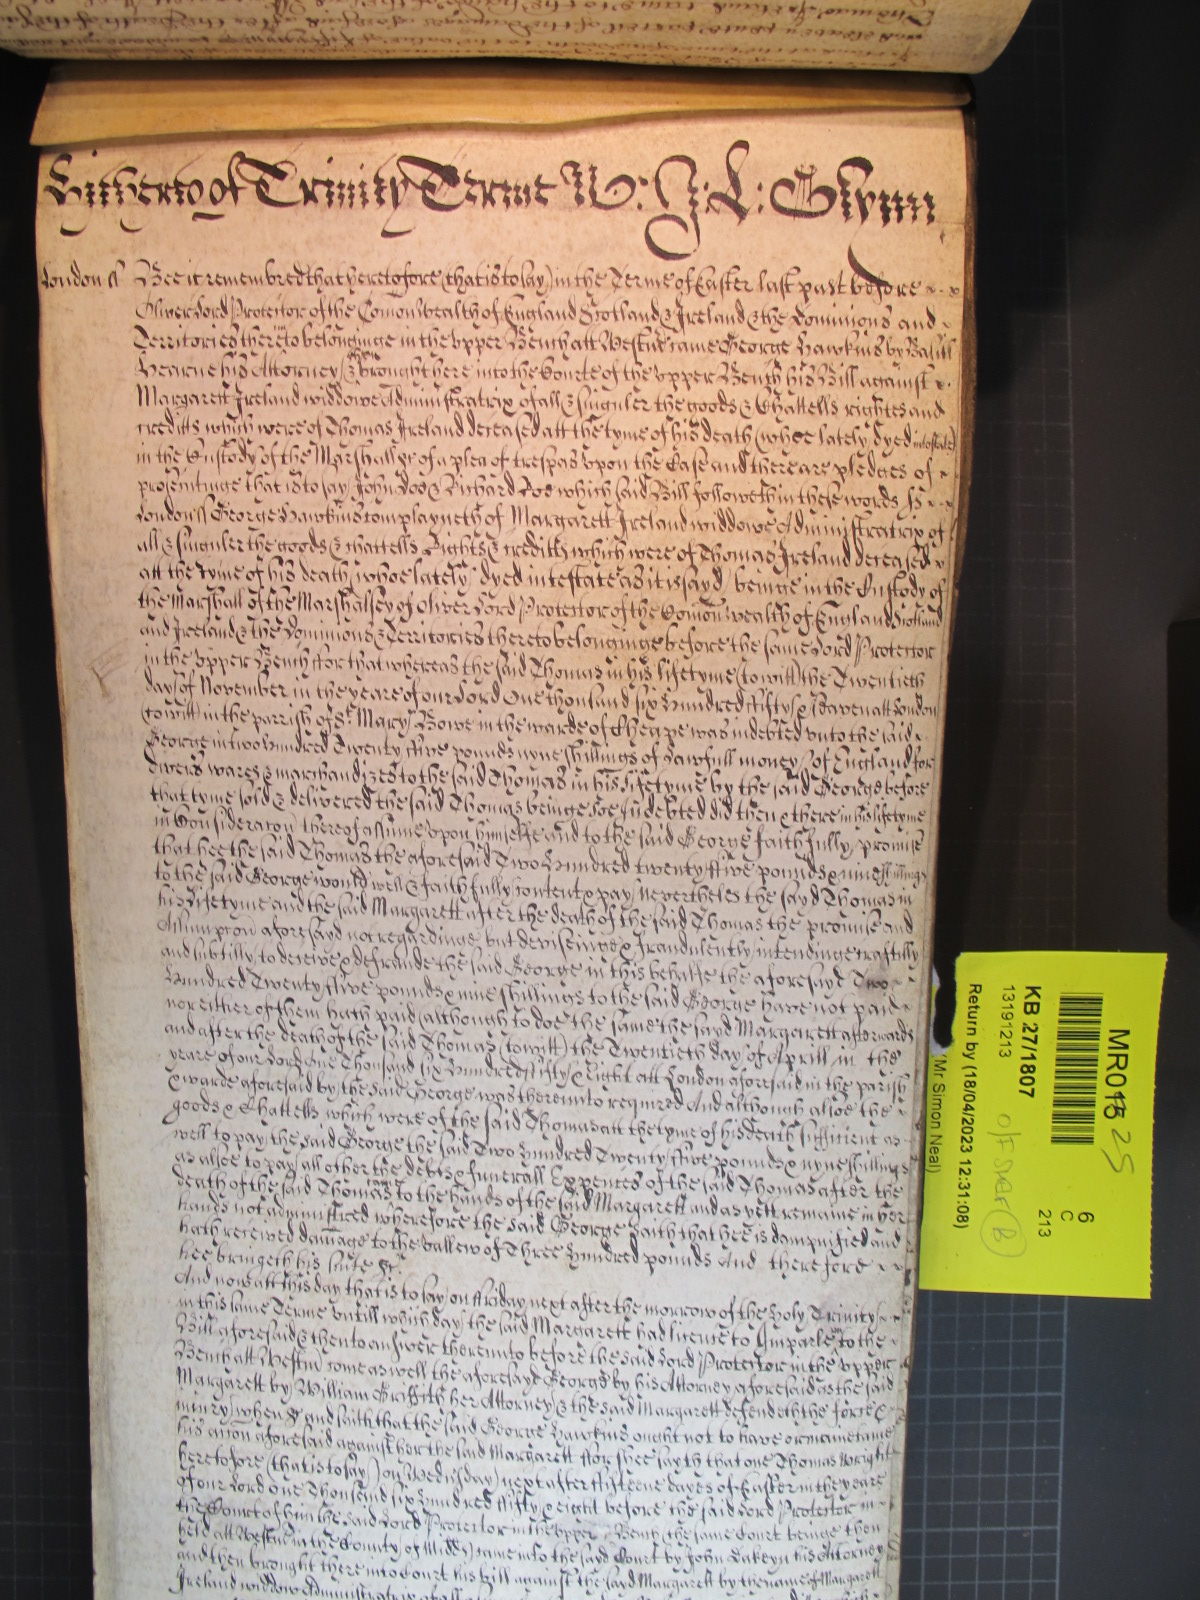 Hitherto of Trinity Terme W: J: L: Glynn
London ss Bee it remembred that heretofore (that is to say) in the Terme of Easter last past before
Oliver Lord Protector of the Comonwealth of England Scotland & Ireland & the Dominions and
Territories thereto belonginge in the upper Bench att Westm came George Hawkins by Basill
Hearne his Attorney & brought here into the Courte of the upper Bench his Bill against
Margarett Ireland widdowe Administratrix of all & singuler the goods & Chattells rightes and
creditts which were of Thomas Ireland deceased att the tyme of his death (whoe lately dyed intestate)
in the Custody of the Marshall &c of a plea of trespas upon the Case and there are pledges of
prosecutinge that is to say John Doe & Richard Roe which said Bill followeth in these words ss
London ss George Hawkins complayneth of Margarett Ireland widdowe Administratrix of
all & singuler the goods & chattells Rights & creditts which were of Thomas Ireland deceased
att the tyme of his death (whoe lately dyed intestate as it is sayd) beinge in the Custody of
the Marshall of the Marshalsey of Oliver Lord Protector of the Comonwealth of England Scotland
and Ireland & the Dominions & Territories thereto belonginge before the same Lord Protector
in the upper Bench ffor that whereas the said Thomas in his lifetyme (to witt) the Twentieth
day of November in the yeare of our Lord One thousand six Hundred ffifty & seaven att London
(to witt) in the parrish of St Mary Bowe in the warde of Cheape was indebted unto the said
George in two Hundred Twenty ffive pounds nyne shillings of Lawfull money of England for
divers wares & marchandizes to the said Thomas in his Lifetyme by the said George before
that tyme sold & delivered the said Thomas beinge soe Indebted did then & there in his lifetyme
in Consideracon thereof assume upon himselfe and to the said George faithfully promise
that hee the said Thomas the aforesaid Two Hundred twenty ffive pounds & nine shillings
to the said George would well & faithfully content & pay Nevertheles the sayd Thomas in
his Lifetyme and the said Margarett after the death of the said Thomas the promise and
Assumpcon aforesayd not regardinge but deviseinge & fraudulently intendinge craftily
and subtilly to deceive & defraude the said George in this behalfe the aforesayd Two
Hundred Twenty ffive pounds & nine shillings to the said George have not paid
nor either of them hath paid (although to doe the same the sayd Margarett afterwards
and after the death of the said Thomas (to witt) the Twentieth day of Aprill in the
yeare of our Lord One Thousand six Hundred ffifty & Eight att London aforesaid in the parish
& warde aforesaid by the said George was thereunto required And although alsoe the
goods & Chattells which were of the said Thomas att the tyme of his death sufficient as
well to pay the said George the said Two Hundred Twenty ffive pounds & nyne shillings
as alsoe to pay all other the debts & funerall Expences of the said Thomas after the
death of the said Thomas came to the hands of the said Margarett and as yett remaine in her
hands not administred wherefore the said George saith that hee is dampnified and
hath received damage to the vallew of Three Hundred pounds And therefore
hee bringeth his suite &c.
And now att this day that is to say on ffriday next after the morrow of the Holy Trinity
in this same Terme untill which day the said Margarett had licence to Imparle to the
Bill aforesaid & then to answer thereunto before the said Lord Protector in the upper
Bench att Westm come as well the aforesayd George by his Attorney aforesaid as the said
Margarett by William Griffith her Attorney & the said Margarett defendeth the force &
iniury when &c and saith that the said George Hawkins ought not to have or maintaine
his accon aforesaid against her the said Margarett ffor shee sayth that one Thomas Wright
heretofore (that is to say) on Wednsday next after ffifteene dayes of Easter in the yeare
of our Lord one Thousend six Hundred ffifty & eight before the said Lord Protector in
the Court of him the said Lord Protector in the upper Bench (the same Court beinge then
held att Westm in the County of Midd) came into the sayd Court by John Dakeyn his Attorney
and then brought there into Court his bill against the sayd Margarett by the name of Margarett
Ireland widdow Administratrix of all
MR018 25
KB 27/1807
13191213
Return by (18/04/2023 12:31:08)
(Mr Simon Neal)
6
C
213